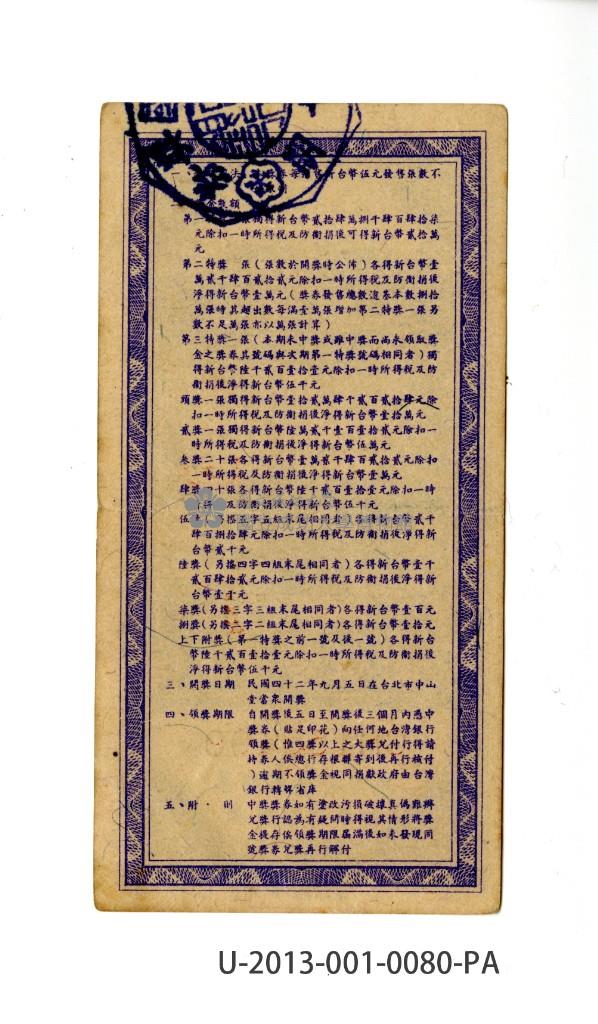 幣伍元發售張數不
第一 張獨得新台幣貳拾肆萬捌千肆百肆拾柒
元除扣一時所得稅及防衛捐後可得新台幣貳拾萬
元
第二特獎 張(張數於開獎時公佈)各得新台幣壹
萬貳千肆百貳拾貳元除扣一時所得稅及防衛捐後
淨得新台幣壹萬元(獎券發售總數逾基本數捌拾
萬張時其超出數每滿壹萬張增加第二特獎一張另
數不足萬張亦以萬張計算)
第三特獎一張(本期未中獎或雖中獎而尚未領取獎
金之獎券其號碼與次期第一特獎號碼相同者)獨
得新台幣陸千貳百壹拾壹元除扣一時所得稅及防
衛捐後淨得新台幣伍千元
頭獎一張獨得新台幣壹拾貳萬肆千貳百貳拾肆元除
扣一時所得稅及防衛捐後淨得新台幣壹拾萬元
貳獎一張獨得新台幣陸萬貳千壹百壹拾貳元除扣一
時所得稅及防衛捐後淨得新台幣伍萬元
叁獎二十張各得新台幣壹萬貳千肆百貳拾貳元除扣
一時所得稅及防衛捐後淨得新台幣壹萬元
肆獎 十張各得新台幣陸千貳百壹拾壹元除扣一時
得 及防衛捐後淨得新台幣伍千元
伍 搖五字五組末尾相同者)各得新台幣貳千
肆百捌拾肆元除扣一時所得稅及防衛捐後淨得新
台幣貳千元
陸獎(另搖四字四組末尾相同者)各得新台幣壹千
貳百肆拾貳元除扣一時所得稅及防衛捐後淨得新
台幣壹千元
柒獎(另搖三字三組末尾相同者)各得新台幣壹百元
捌獎(另搖二字二組末尾相同者)各得新台幣壹拾元
上下附獎(第一特獎之前一號及後一號)各得新台
幣陸千貳百壹拾壹元除扣一時所得稅及防衛捐後
淨得新台幣伍千元
三、開獎日期 民國四十二年九月五日在台北市中山
堂當衆開獎
四、領獎期限 自開獎後五日至開獎後三個月內憑中
獎券(貼足印花)向任何地台灣銀行
領獎(惟四獎以上之大獎兌付行得請
持券人俟總行存根聯寄到後再行核付
)逾期不領獎金視同捐獻政府由台灣
銀行轉解省庫
五、附 則 中獎獎券如有塗改污損破壞真偽難辨
兌獎行認為有疑問時得視其情形將獎
金提存俟領獎期限屆滿後如未發現同
號獎券兌獎再行解付
U-2013-001-0080-PA